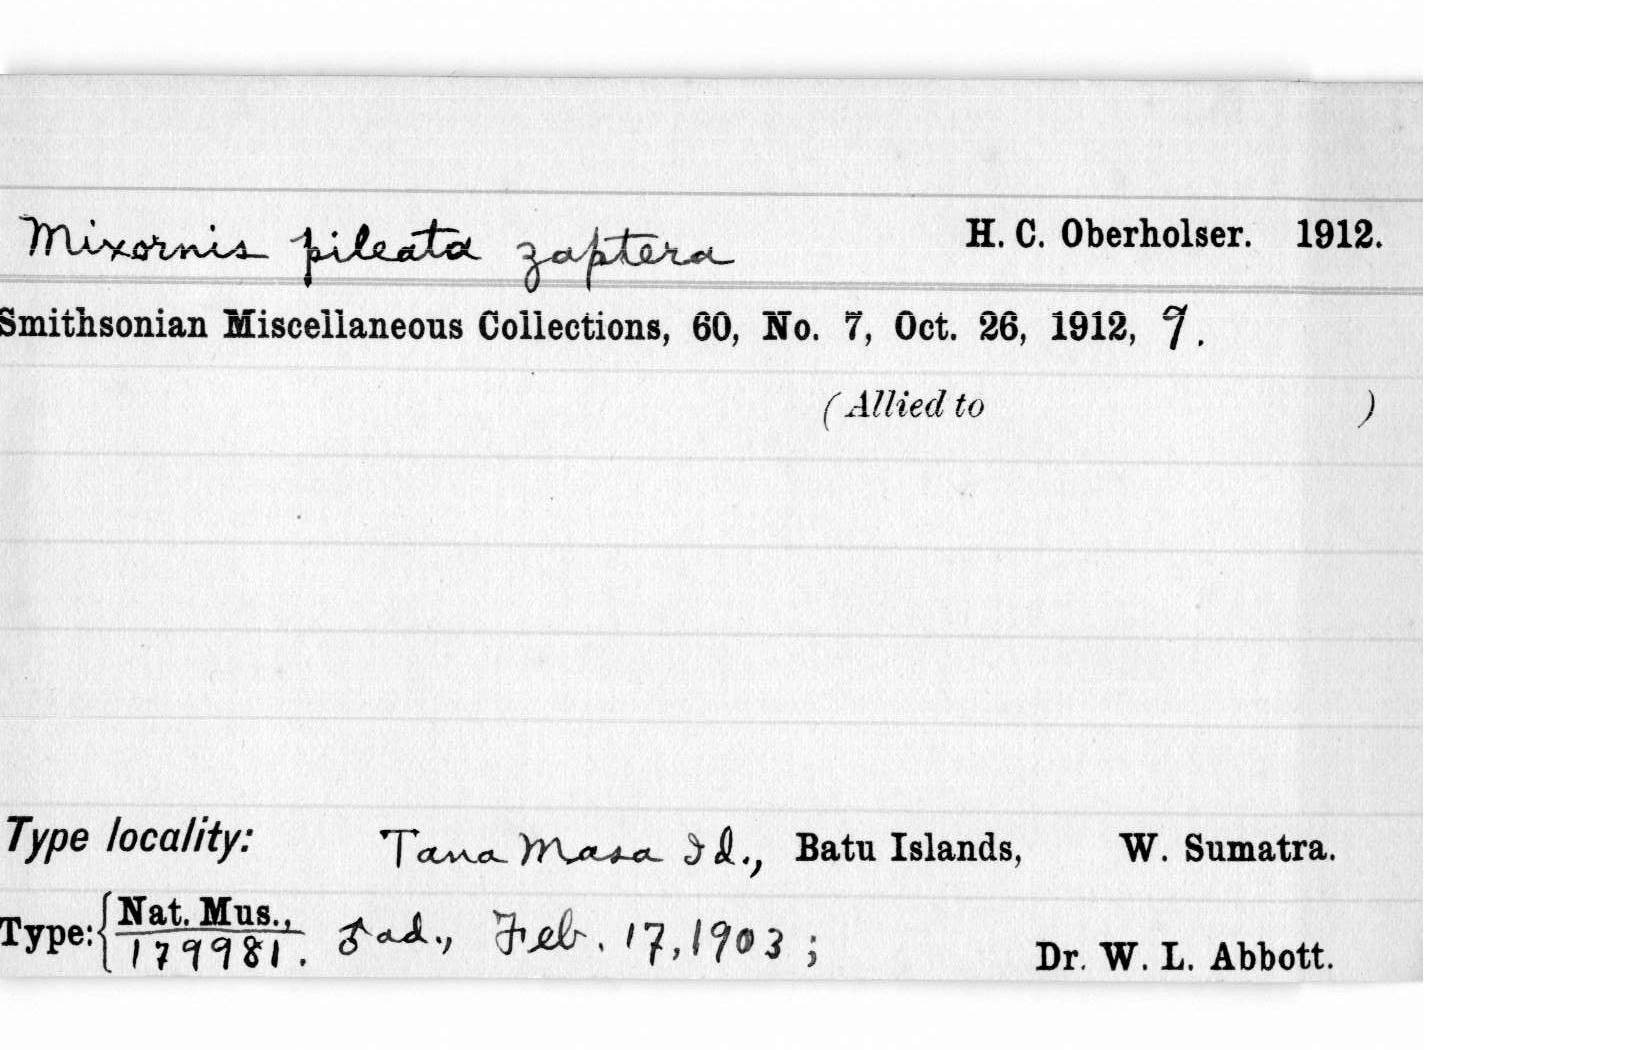 Mixornis pileata zaptera H. C. Oberholser. 1912.
Smithsonian Miscellaneous Collections, 60, No. 7, Oct. 26, 1912, 9.
(Allied to )
Type locality: Tana Masa Id., Batu Islands, W. Sumatra.
Type: { Nat. Mus.,
179981. ♂ ad., Feb. 17, 1903; Dr. W. L. Abbott.